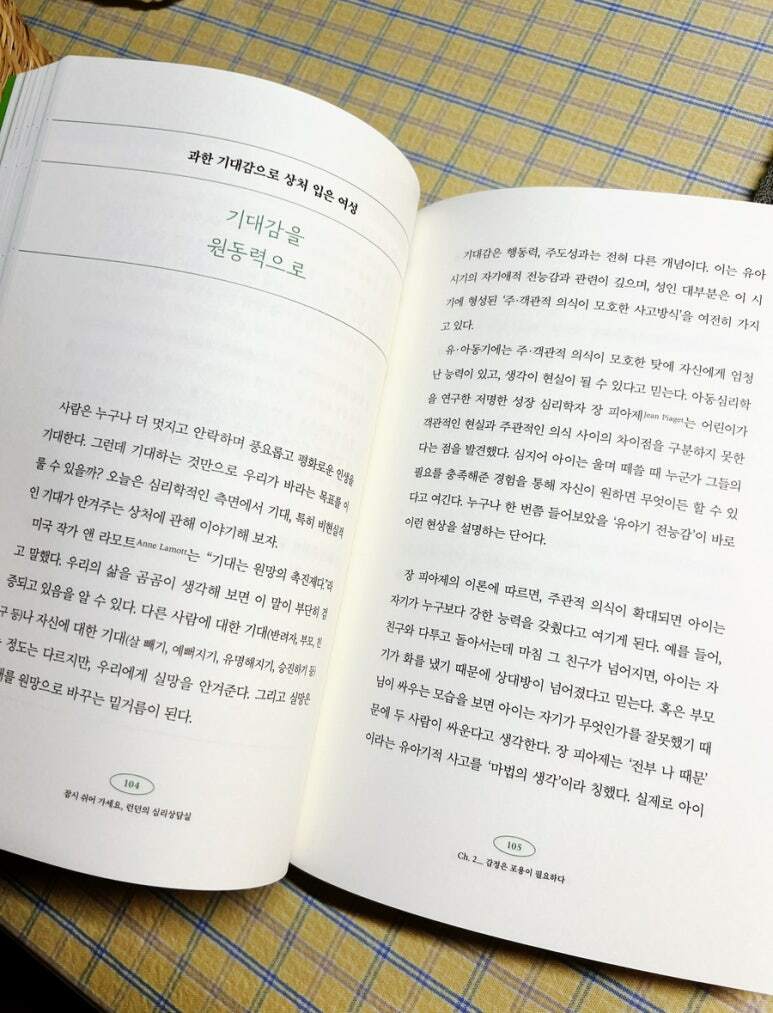 과한 기대감으로 상처 입은 여성
기대감을
원동력으로
사람은 누구나 더 멋지고 안락하며 풍요롭고 평화로운 인생을
기대한다. 그런데 기대하는 것만으로 우리가 바라는 목표를 이
룰 수 있을까? 오늘은 심리학적인 측면에서 기대, 특히 비현실적
인 기대가 안겨주는 상처에 관해 이야기해 보자.
미국 작가 앤 라모트Anne Lamott는 “기대는 원망의 촉진제다.”라
고 말했다. 우리의 삶을 곰곰이 생각해 보면 이 말이 부단히 검
증되고 있음을 알 수 있다. 다른 사람에 대한 기대(반려자, 부모, 친
구 등)나 자신에 대한 기대(살 빼기, 예뻐지기, 유명해지기, 승진하기 등)
정도는 다르지만, 우리에게 실망을 안겨준다. 그리고 실망은
원망으로 바꾸는 밑거름이 된다.
104
잠시 쉬어 가세요, 런던의 심리상담실
기대감은 행동력, 주도성과는 전혀 다른 개념이다. 이는 유아
시기의 자기애적 전능감과 관련이 깊으며, 성인 대부분은 이 시
기에 형성된 ‘주·객관적 의식이 모호한 사고방식’을 여전히 가지
고 있다.
유·아동기에는 주·객관적 의식이 모호한 탓에 자신에게 엄청
난 능력이 있고, 생각이 현실이 될 수 있다고 믿는다. 아동심리학
을 연구한 저명한 성장 심리학자 장 피아제Jean Piaget는 어린이가
객관적인 현실과 주관적인 의식 사이의 차이점을 구분하지 못한
다는 점을 발견했다. 심지어 아이는 울며 떼쓸 때 누군가 그들의
필요를 충족해준 경험을 통해 자신이 원하면 무엇이든 할 수 있
다고 여긴다. 누구나 한 번쯤 들어보았을 ‘유아기 전능감’이 바로
이런 현상을 설명하는 단어다.
장 피아제의 이론에 따르면, 주관적 의식이 확대되면 아이는
자기가 누구보다 강한 능력을 갖췄다고 여기게 된다. 예를 들어,
친구와 다투고 돌아서는데 마침 그 친구가 넘어지면, 아이는 자
기가 화를 냈기 때문에 상대방이 넘어졌다고 믿는다. 혹은 부모
님이 싸우는 모습을 보면 아이는 자기가 무엇인가를 잘못했기 때
문에 두 사람이 싸운다고 생각한다. 장 피아제는 ‘전부 나 때문’
이라는 유아기적 사고를 ‘마법의 생각’이라 칭했다. 실제로 아이
105
Ch. 2_ 감정은 포용이 필요하다